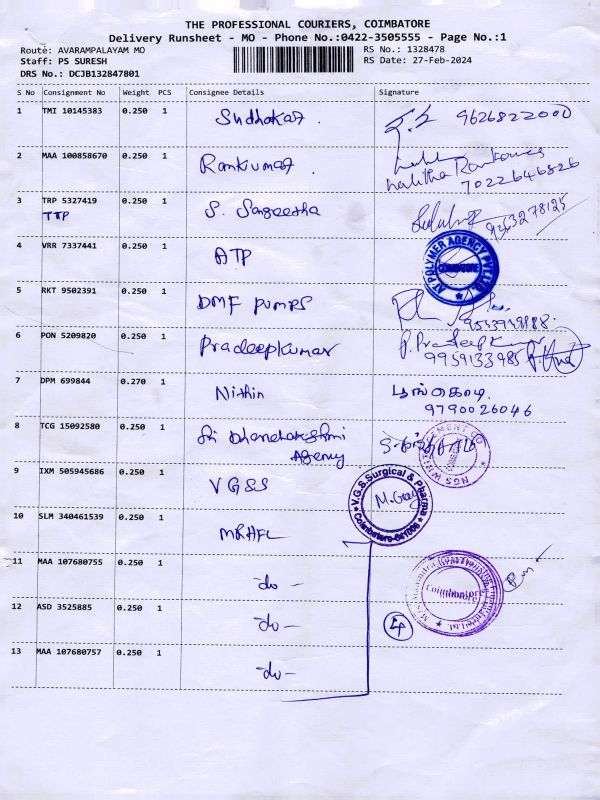 THE PROFESSIONAL COURIERS, COIMBATORE
Delivery Runsheet - MO - Phone No.:0422-3505555 - Page No.:1
Route: AVARAMPALAYAM MO
RS No.: 1328478
Staff: PS SURESH
RS Date: 27-Feb-2024
DRS No.: DCJB132847801
S No Consignment No Weight PCS Consignee Details Signature
1 TMI 10145383 0.250 1 Sudhakar. 9626822000
2 MAA 100858670 0.250 1 Ramkumar. Lalitha Ramkumar
7022646826
3 TRP 5327419 0.250 1 S. Sangeetha
TTP
9363278125
4 VRR 7337441 0.250 1 ATP
AT POLYMER AGENCY PVT LTD
COIMBATORE
5 RKT 9502391 0.250 1 DMF PUMPS
6 PON 5209820 0.250 1 Pradeepkumar P. Pradeep Kumar
9959133985
7 DPM 699844 0.270 1 Nithin பூங்கொடி.
9790026046
8 TCG 15092580 0.250 1 Sri Dhanalakshmi
Agency
9 IXM 505945686 0.250 1 VGSS
V.G.S.Surgical & Pharma
Coimbatore-641006
10 SLM 340461539 0.250 1 MRHFL
11 MAA 107680755 0.250 1 -do-
Coimbatore
12 ASD 3525885 0.250 1 -do-
4
13 MAA 107680757 0.250 1 -do-